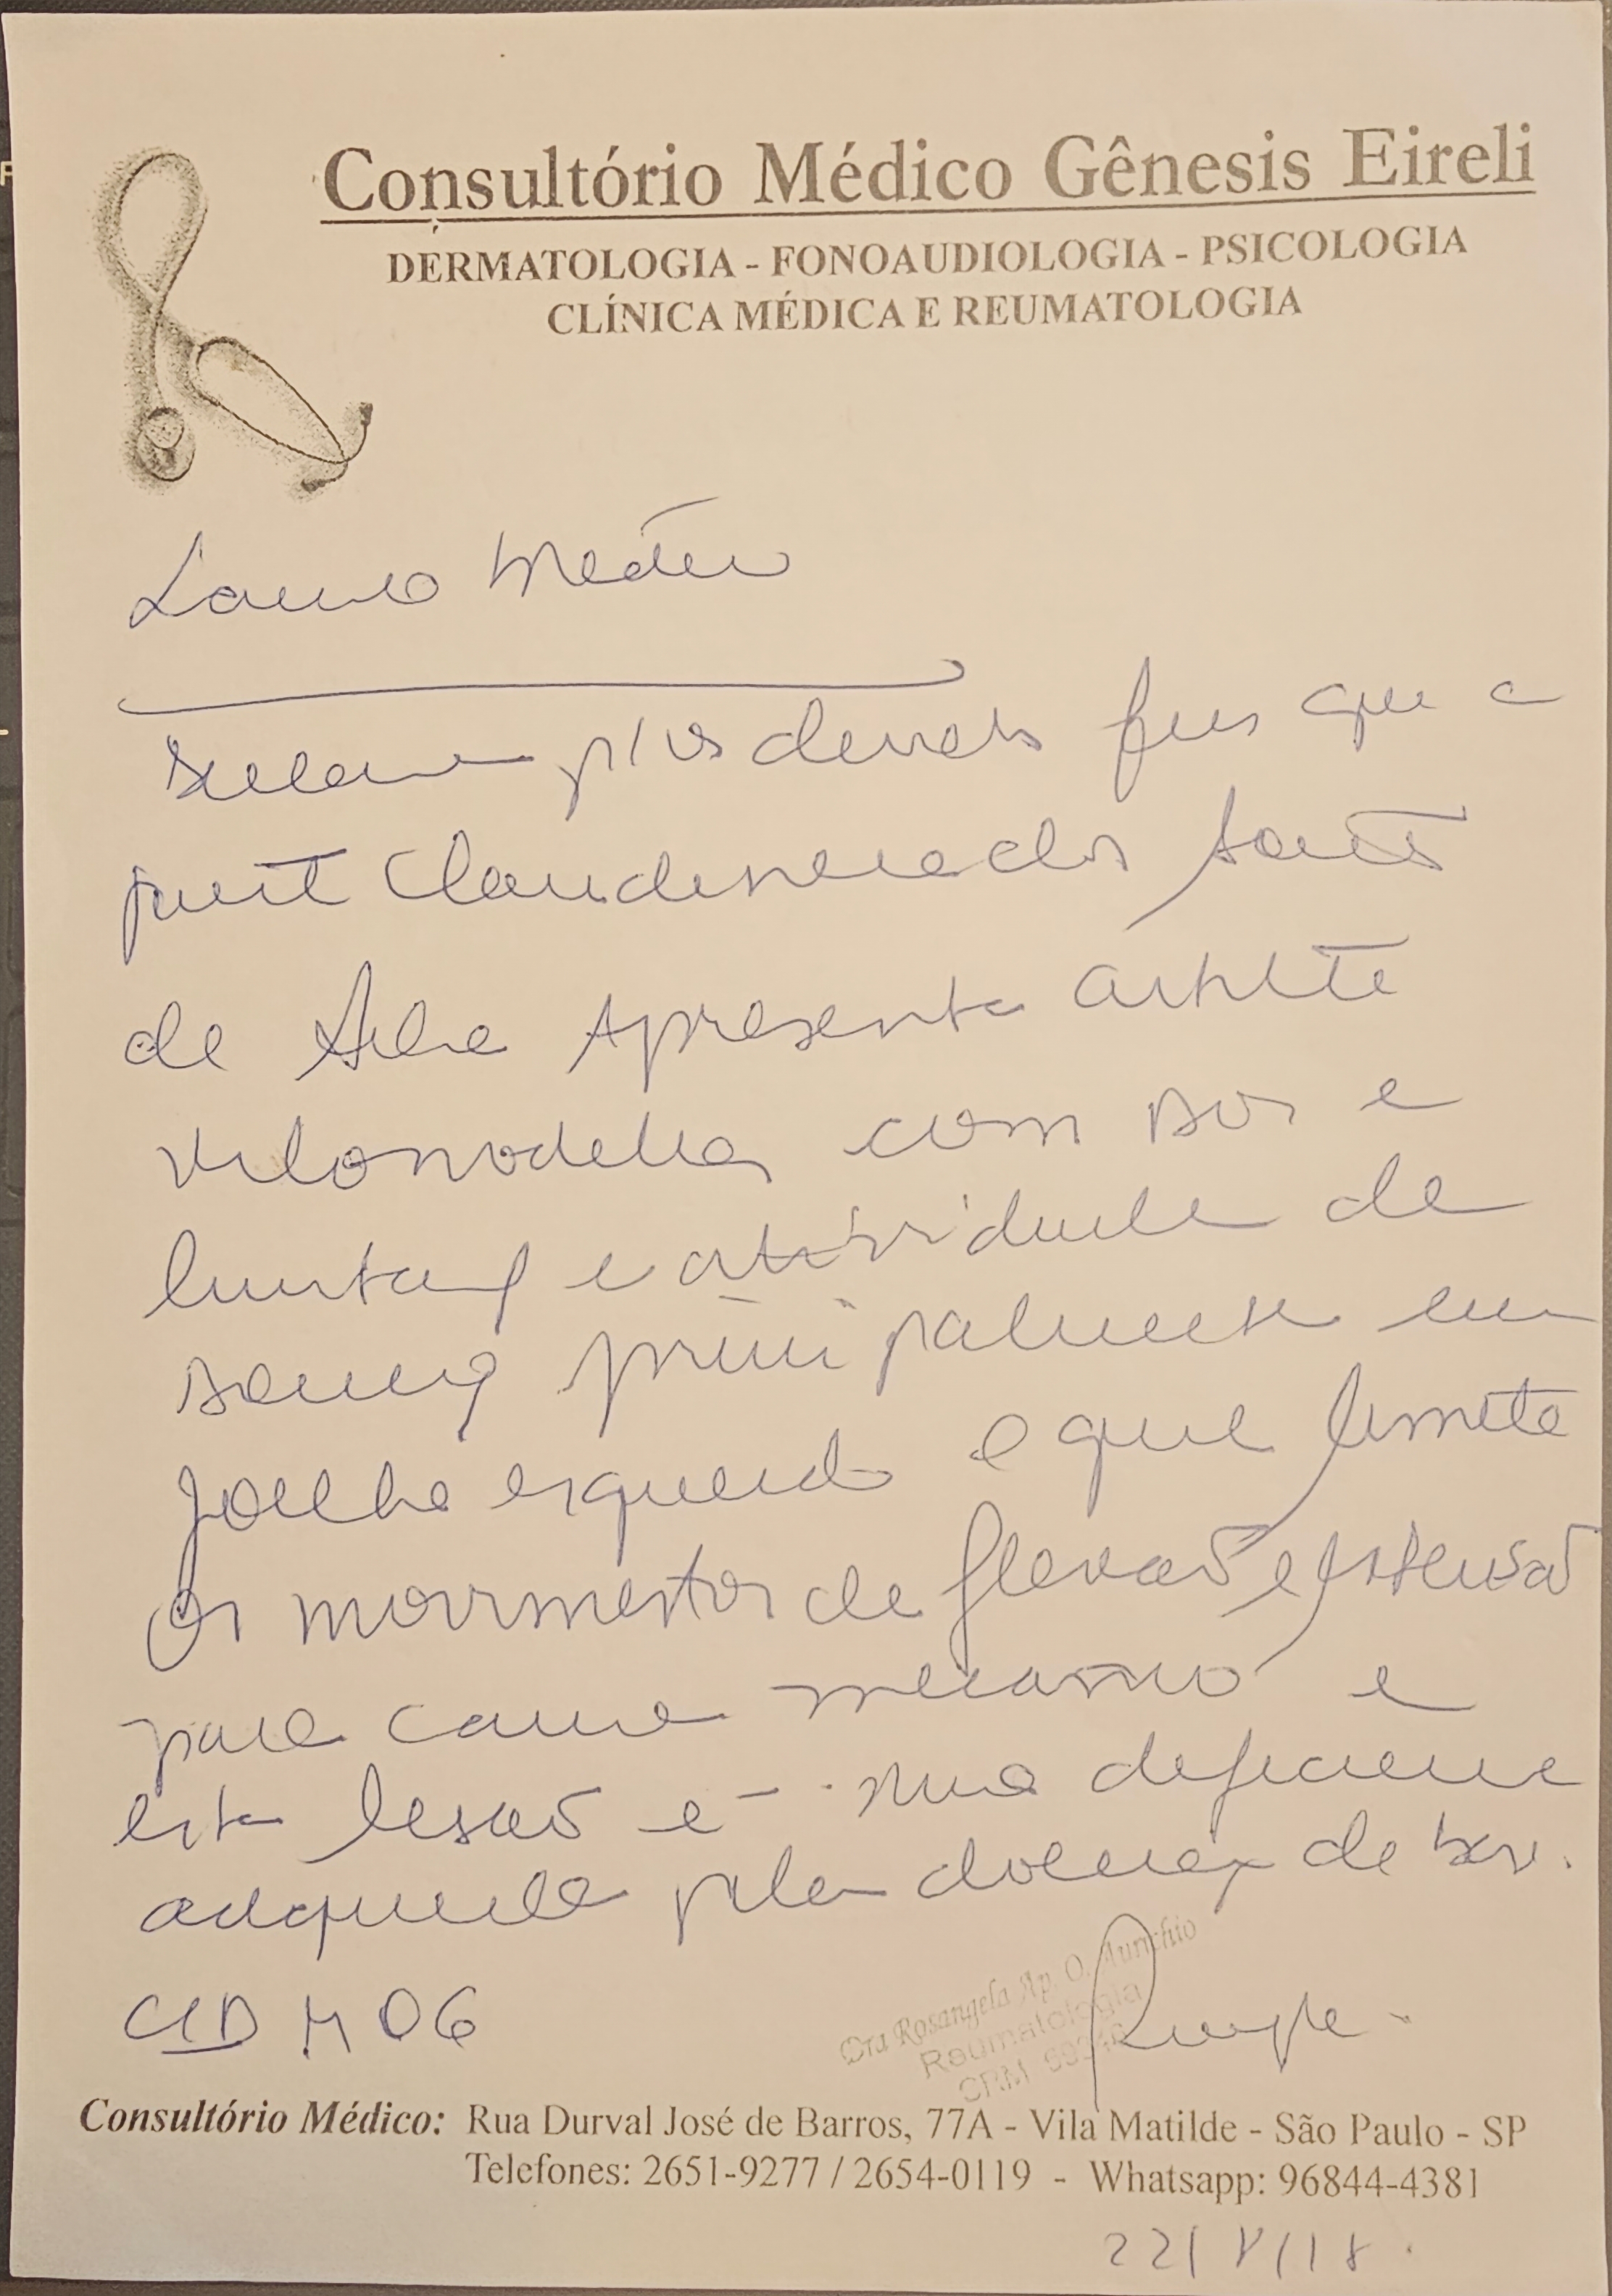 Consultório Médico Gênesis Eireli
DERMATOLOGIA - FONOAUDIOLOGIA - PSICOLOGIA
CLÍNICA MÉDICA E REUMATOLOGIA
Laudo Médico
Declaro p/ os devidos fins que a
de Silva apresenta artrite
vilonodular com dor e
e atividade de
doença principalmente em
joelho esquerdo e que limita
os movimentos de flexão e extensão
para e
esta lesão é uma deficiência
adquirida pela doença de base.
CID M 06
Dra Rosangela Ap. O.
Reumatologia
CRM
Consultório Médico: Rua Durval José de Barros, 77A - Vila Matilde - São Paulo - SP
Telefones: 2651-9277 / 2654-0119 - Whatsapp: 96844-4381